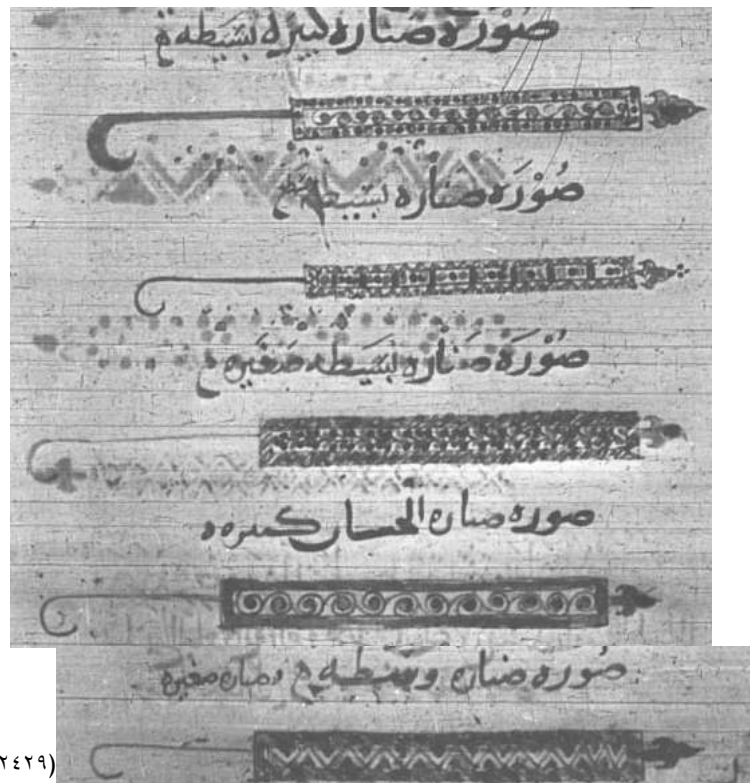 صورة صناره كبيره بسيطه
صُوْرَة صناره بسيطه
صُوْرَة صناره بسيطه صَغيره
صوره صناره الحسان كبيره
صُوره صناره وبسيطه وصناره صغيره
٢٤٢٩)